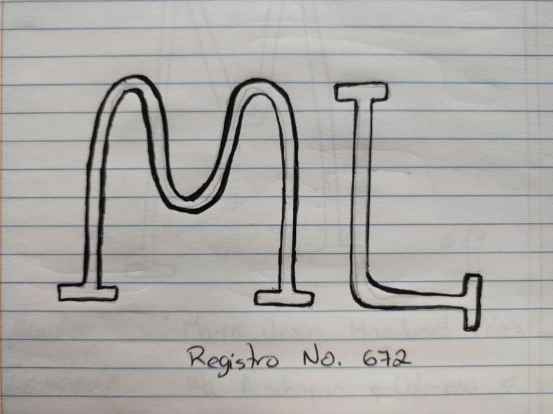 ML
Registro No. 672